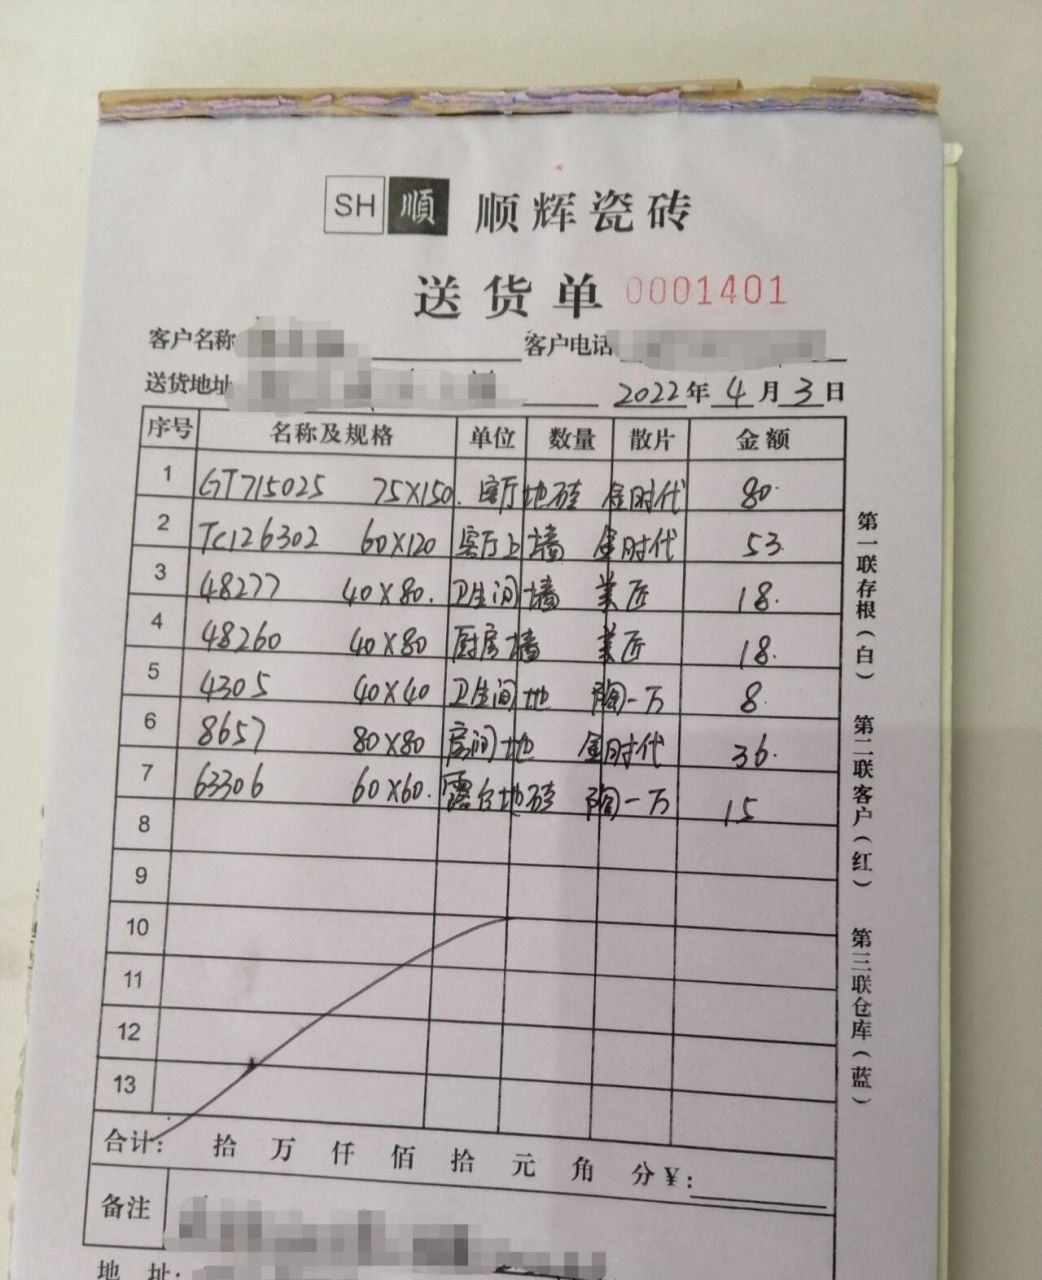 SH 順 顺辉瓷砖
送货单 0001401
客户名称 客户电话
送货地址 2022年4月3日
序号 名称及规格 单位 数量 散片 金额
1 GT715025 75X150. 客厅地砖 金时代 80.
2 TC126302 60X120 客厅上墙 金时代 53.
3 48277 40X80. 卫生间墙 美匠 18.
4 48260 40X80 厨房墙 美匠 18.
5 4305 40X40 卫生间地 陶一万 8.
6 8657 80X80 房间地 金时代 36.
7 63306 60X60. 露台地砖 陶一万 15
8
9
10
11
12
13
合计: 拾 万 仟 佰 拾 元 角 分¥:
备注
地 址:
第一联存根(白) 第二联客户(红) 第三联仓库(蓝)